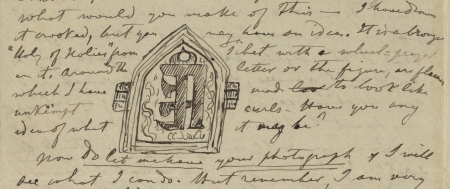 what would you make of this — I have drawn
it crooked, but you may have an idea. It is a bronze
"Holy of Holies" from Tibet with a wheel-prayer
in it. Around the letter or the figure, are flames
which I have made to look like
unkempt curls. Have you any
idea of what it may be?
Now do let me have your photograph & I will
see what I can do. But remember, I am very